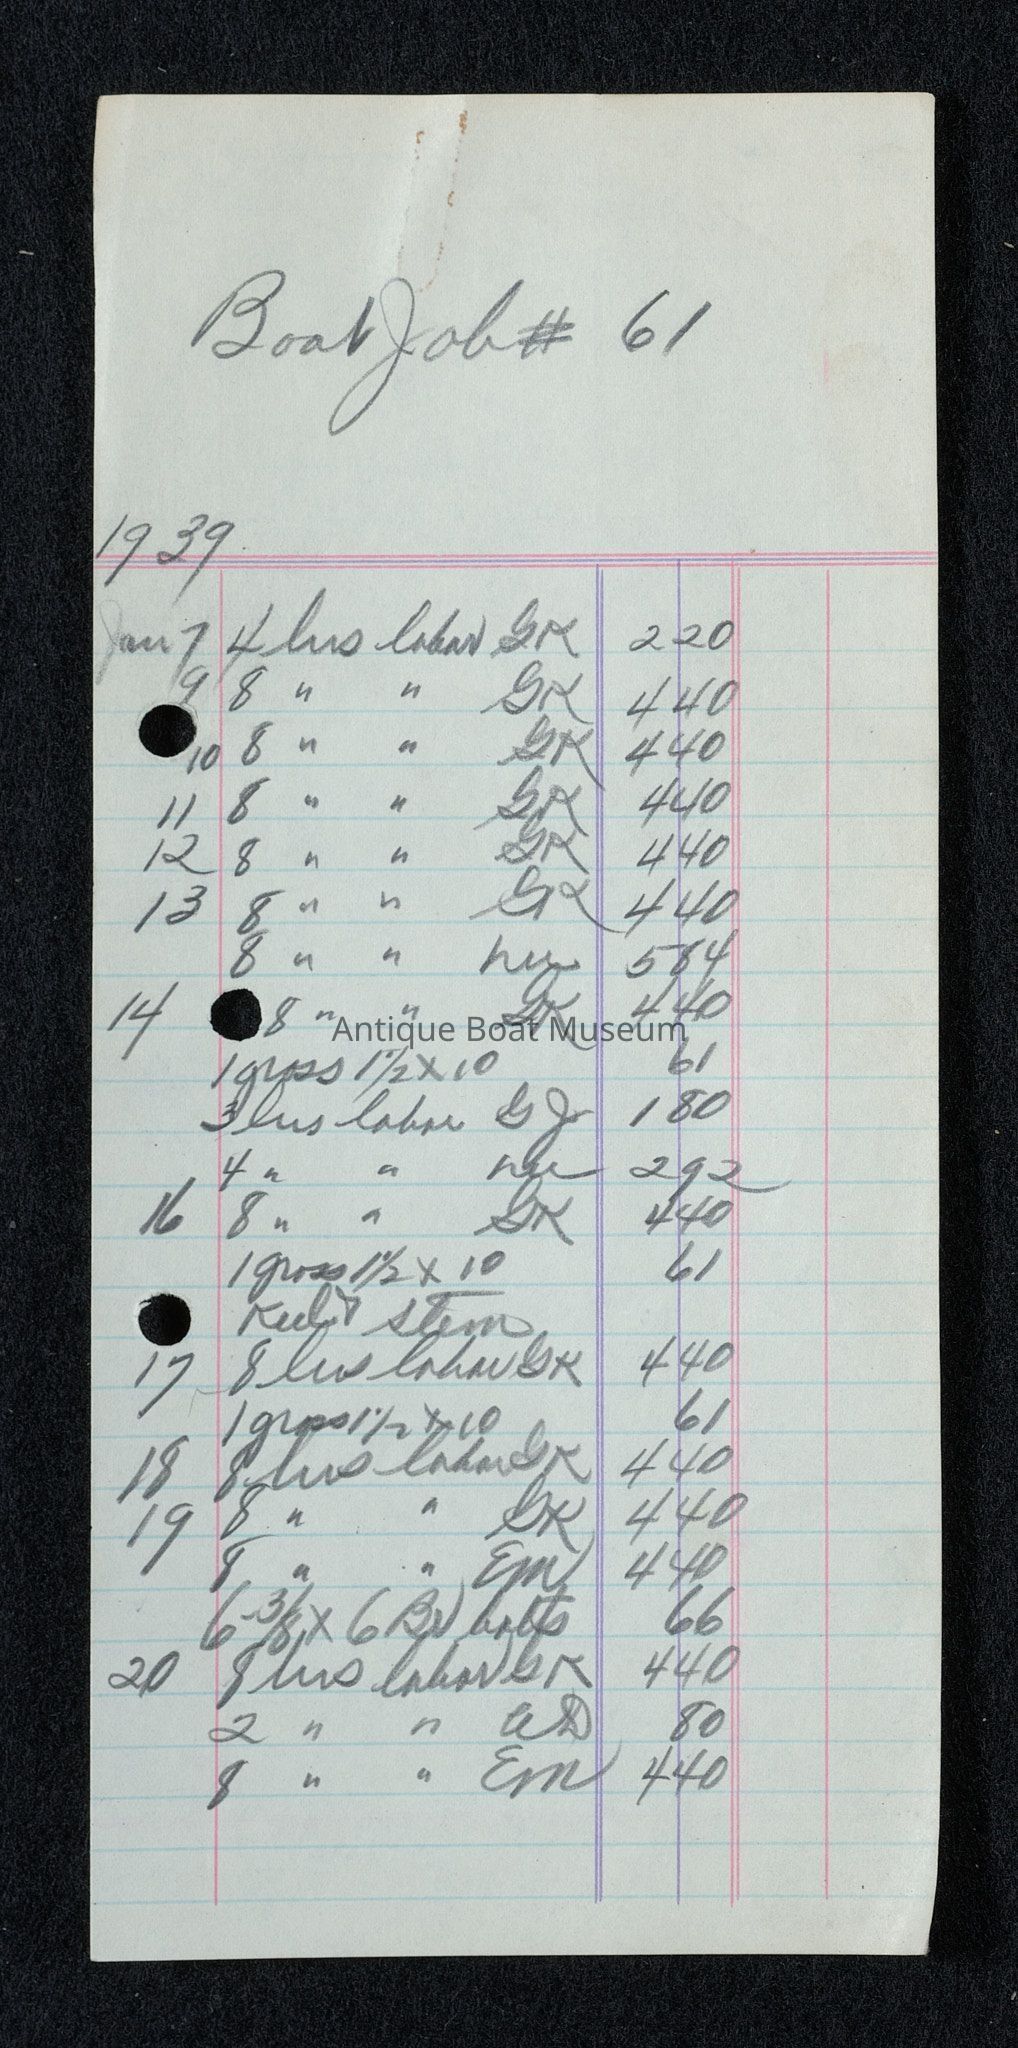 Boat Job # 61
1939
Jan 7 4 hrs labor GK 2 20
9 8 " " GK 4 40
10 8 " " GK 4 40
11 8 " " GK 4 40
12 8 " " GK 4 40
13 8 " " GK 4 40
8 " " 5 84
14 8 " " GK 4 40
Antique Boat Museum
1 gross 1 1/2 x 10 61
3 hrs labor GJ 1 80
4 " " 2 92
16 8 " " GK 4 40
1 gross 1 1/2 x 10 61
Stem
17 8 hrs labor GK 4 40
1 gross 1 1/2 x 10 61
18 8 hrs labor GK 4 40
19 8 " " GK 4 40
8 " " EM 4 40
6 3/8 x 6 Br bolts 66
20 8 hrs labor GK 4 40
2 " " 80
8 " " EM 4 40